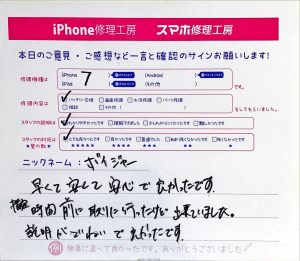 iPhone修理工房 スマホ修理工房
本日のご意見・ご感想など一言と確認のサインお願いします!
修理機種は
(iPhone 7 ) (Android )
(iPad ) (その他 )
修理内容は
✓バッテリー交換 □画面修理 □水没修理 □パーツ修理
をしてもらいました。
スタッフの説明は
スタッフの対応は
★星の数★
★★★★★ ★★★★ ★★★ ★★ ★
ニックネーム:ボイジャー
早くて安くて安心でよかったです。
時間前に取りに行ったけど出来ていました。
説明がていねいでよかったです。
例 無事に直って良かったです。ありがとうございました